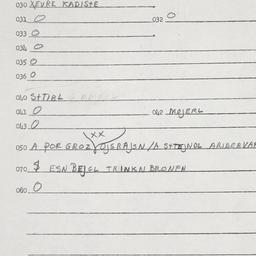 030 XEVRE KADISTE
031 0 032 0
033 0
034 0
035 0
036 0
040 STTIAL
041 0 042 MOJERL
043 0
XX
050 A POR GROZ OJGRAJSN / A STTEJNOL
070 $ ESN BEJEL TRINKN BRONFN
080 0